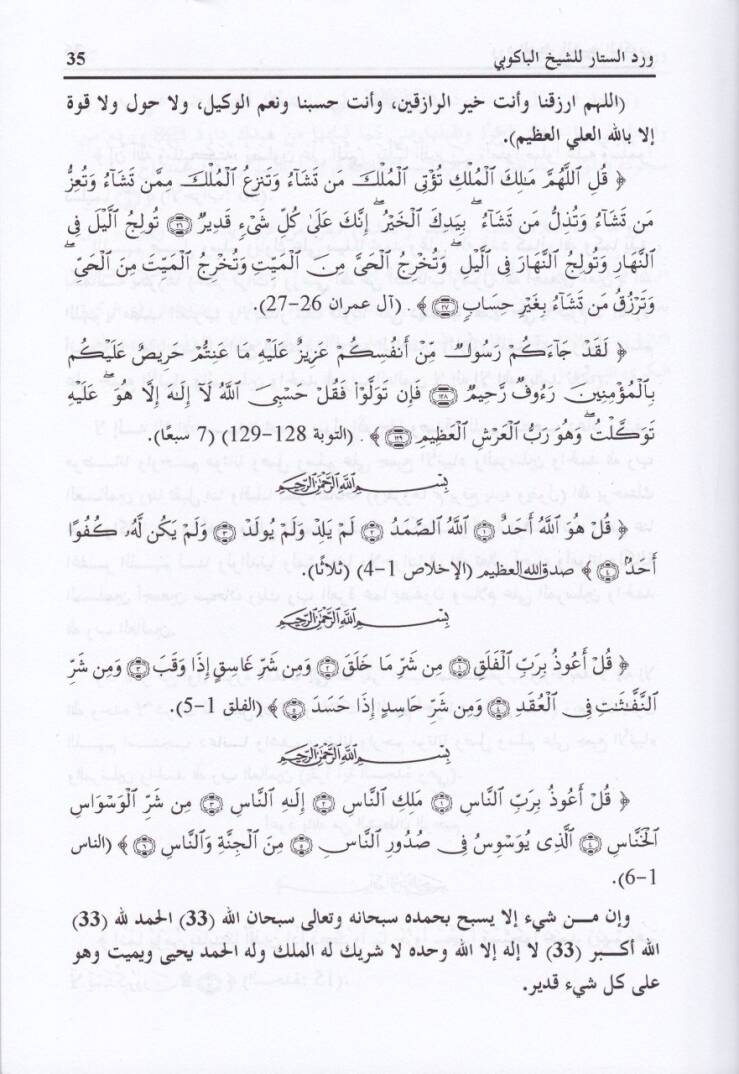 ورد الستار للشيخ الباكوبي 35
(اللهم ارزقنا وأنت خير الرازقين، وأنت حسبنا ونعم الوكيل، ولا حول ولا قوة
إلا بالله العلي العظيم).
﴿ قُلِ ٱللَّهُمَّ مَٰلِكَ ٱلْمُلْكِ تُؤْتِى ٱلْمُلْكَ مَن تَشَآءُ وَتَنزِعُ ٱلْمُلْكَ مِمَّن تَشَآءُ وَتُعِزُّ
مَن تَشَآءُ وَتُذِلُّ مَن تَشَآءُ ۖ بِيَدِكَ ٱلْخَيْرُ ۖ إِنَّكَ عَلَىٰ كُلِّ شَىْءٍ قَدِيرٌ ﴿٢٦﴾ تُولِجُ ٱلَّيْلَ فِى
ٱلنَّهَارِ وَتُولِجُ ٱلنَّهَارَ فِى ٱلَّيْلِ ۖ وَتُخْرِجُ ٱلْحَىَّ مِنَ ٱلْمَيِّتِ وَتُخْرِجُ ٱلْمَيِّتَ مِنَ ٱلْحَىِّ ۖ
وَتَرْزُقُ مَن تَشَآءُ بِغَيْرِ حِسَابٍ ﴿٢٧﴾ ﴾. (آل عمران 26-27).
﴿ لَقَدْ جَآءَكُمْ رَسُولٌ مِّنْ أَنفُسِكُمْ عَزِيزٌ عَلَيْهِ مَا عَنِتُّمْ حَرِيصٌ عَلَيْكُم
بِٱلْمُؤْمِنِينَ رَءُوفٌ رَّحِيمٌ ﴿١٢٨﴾ فَإِن تَوَلَّوْا۟ فَقُلْ حَسْبِىَ ٱللَّهُ لَآ إِلَٰهَ إِلَّا هُوَ ۖ عَلَيْهِ
تَوَكَّلْتُ ۖ وَهُوَ رَبُّ ٱلْعَرْشِ ٱلْعَظِيمِ ﴿١٢٩﴾ ﴾. (التوبة 128-129) (7 سبعًا).
بِسْمِ ٱللَّهِ ٱلرَّحْمَٰنِ ٱلرَّحِيمِ
﴿ قُلْ هُوَ ٱللَّهُ أَحَدٌ ﴿١﴾ ٱللَّهُ ٱلصَّمَدُ ﴿٢﴾ لَمْ يَلِدْ وَلَمْ يُولَدْ ﴿٣﴾ وَلَمْ يَكُن لَّهُۥ كُفُوًا
أَحَدٌۢ ﴿٤﴾ ﴾ صدق الله العظيم (الإخلاص 1-4) (ثلاثًا).
بِسْمِ ٱللَّهِ ٱلرَّحْمَٰنِ ٱلرَّحِيمِ
﴿ قُلْ أَعُوذُ بِرَبِّ ٱلْفَلَقِ ﴿١﴾ مِن شَرِّ مَا خَلَقَ ﴿٢﴾ وَمِن شَرِّ غَاسِقٍ إِذَا وَقَبَ ﴿٣﴾ وَمِن شَرِّ
ٱلنَّفَّٰثَٰتِ فِى ٱلْعُقَدِ ﴿٤﴾ وَمِن شَرِّ حَاسِدٍ إِذَا حَسَدَ ﴿٥﴾ ﴾ (الفلق 1-5).
بِسْمِ ٱللَّهِ ٱلرَّحْمَٰنِ ٱلرَّحِيمِ
﴿ قُلْ أَعُوذُ بِرَبِّ ٱلنَّاسِ ﴿١﴾ مَلِكِ ٱلنَّاسِ ﴿٢﴾ إِلَٰهِ ٱلنَّاسِ ﴿٣﴾ مِن شَرِّ ٱلْوَسْوَاسِ
ٱلْخَنَّاسِ ﴿٤﴾ ٱلَّذِى يُوَسْوِسُ فِى صُدُورِ ٱلنَّاسِ ﴿٥﴾ مِنَ ٱلْجِنَّةِ وَٱلنَّاسِ ﴿٦﴾ ﴾ (الناس
1-6).
وإن من شيء إلا يسبح بحمده سبحانه وتعالى سبحان الله (33) الحمد لله (33)
الله أكبر (33) لا إله إلا الله وحده لا شريك له الملك وله الحمد يحيى ويميت وهو
على كل شيء قدير.